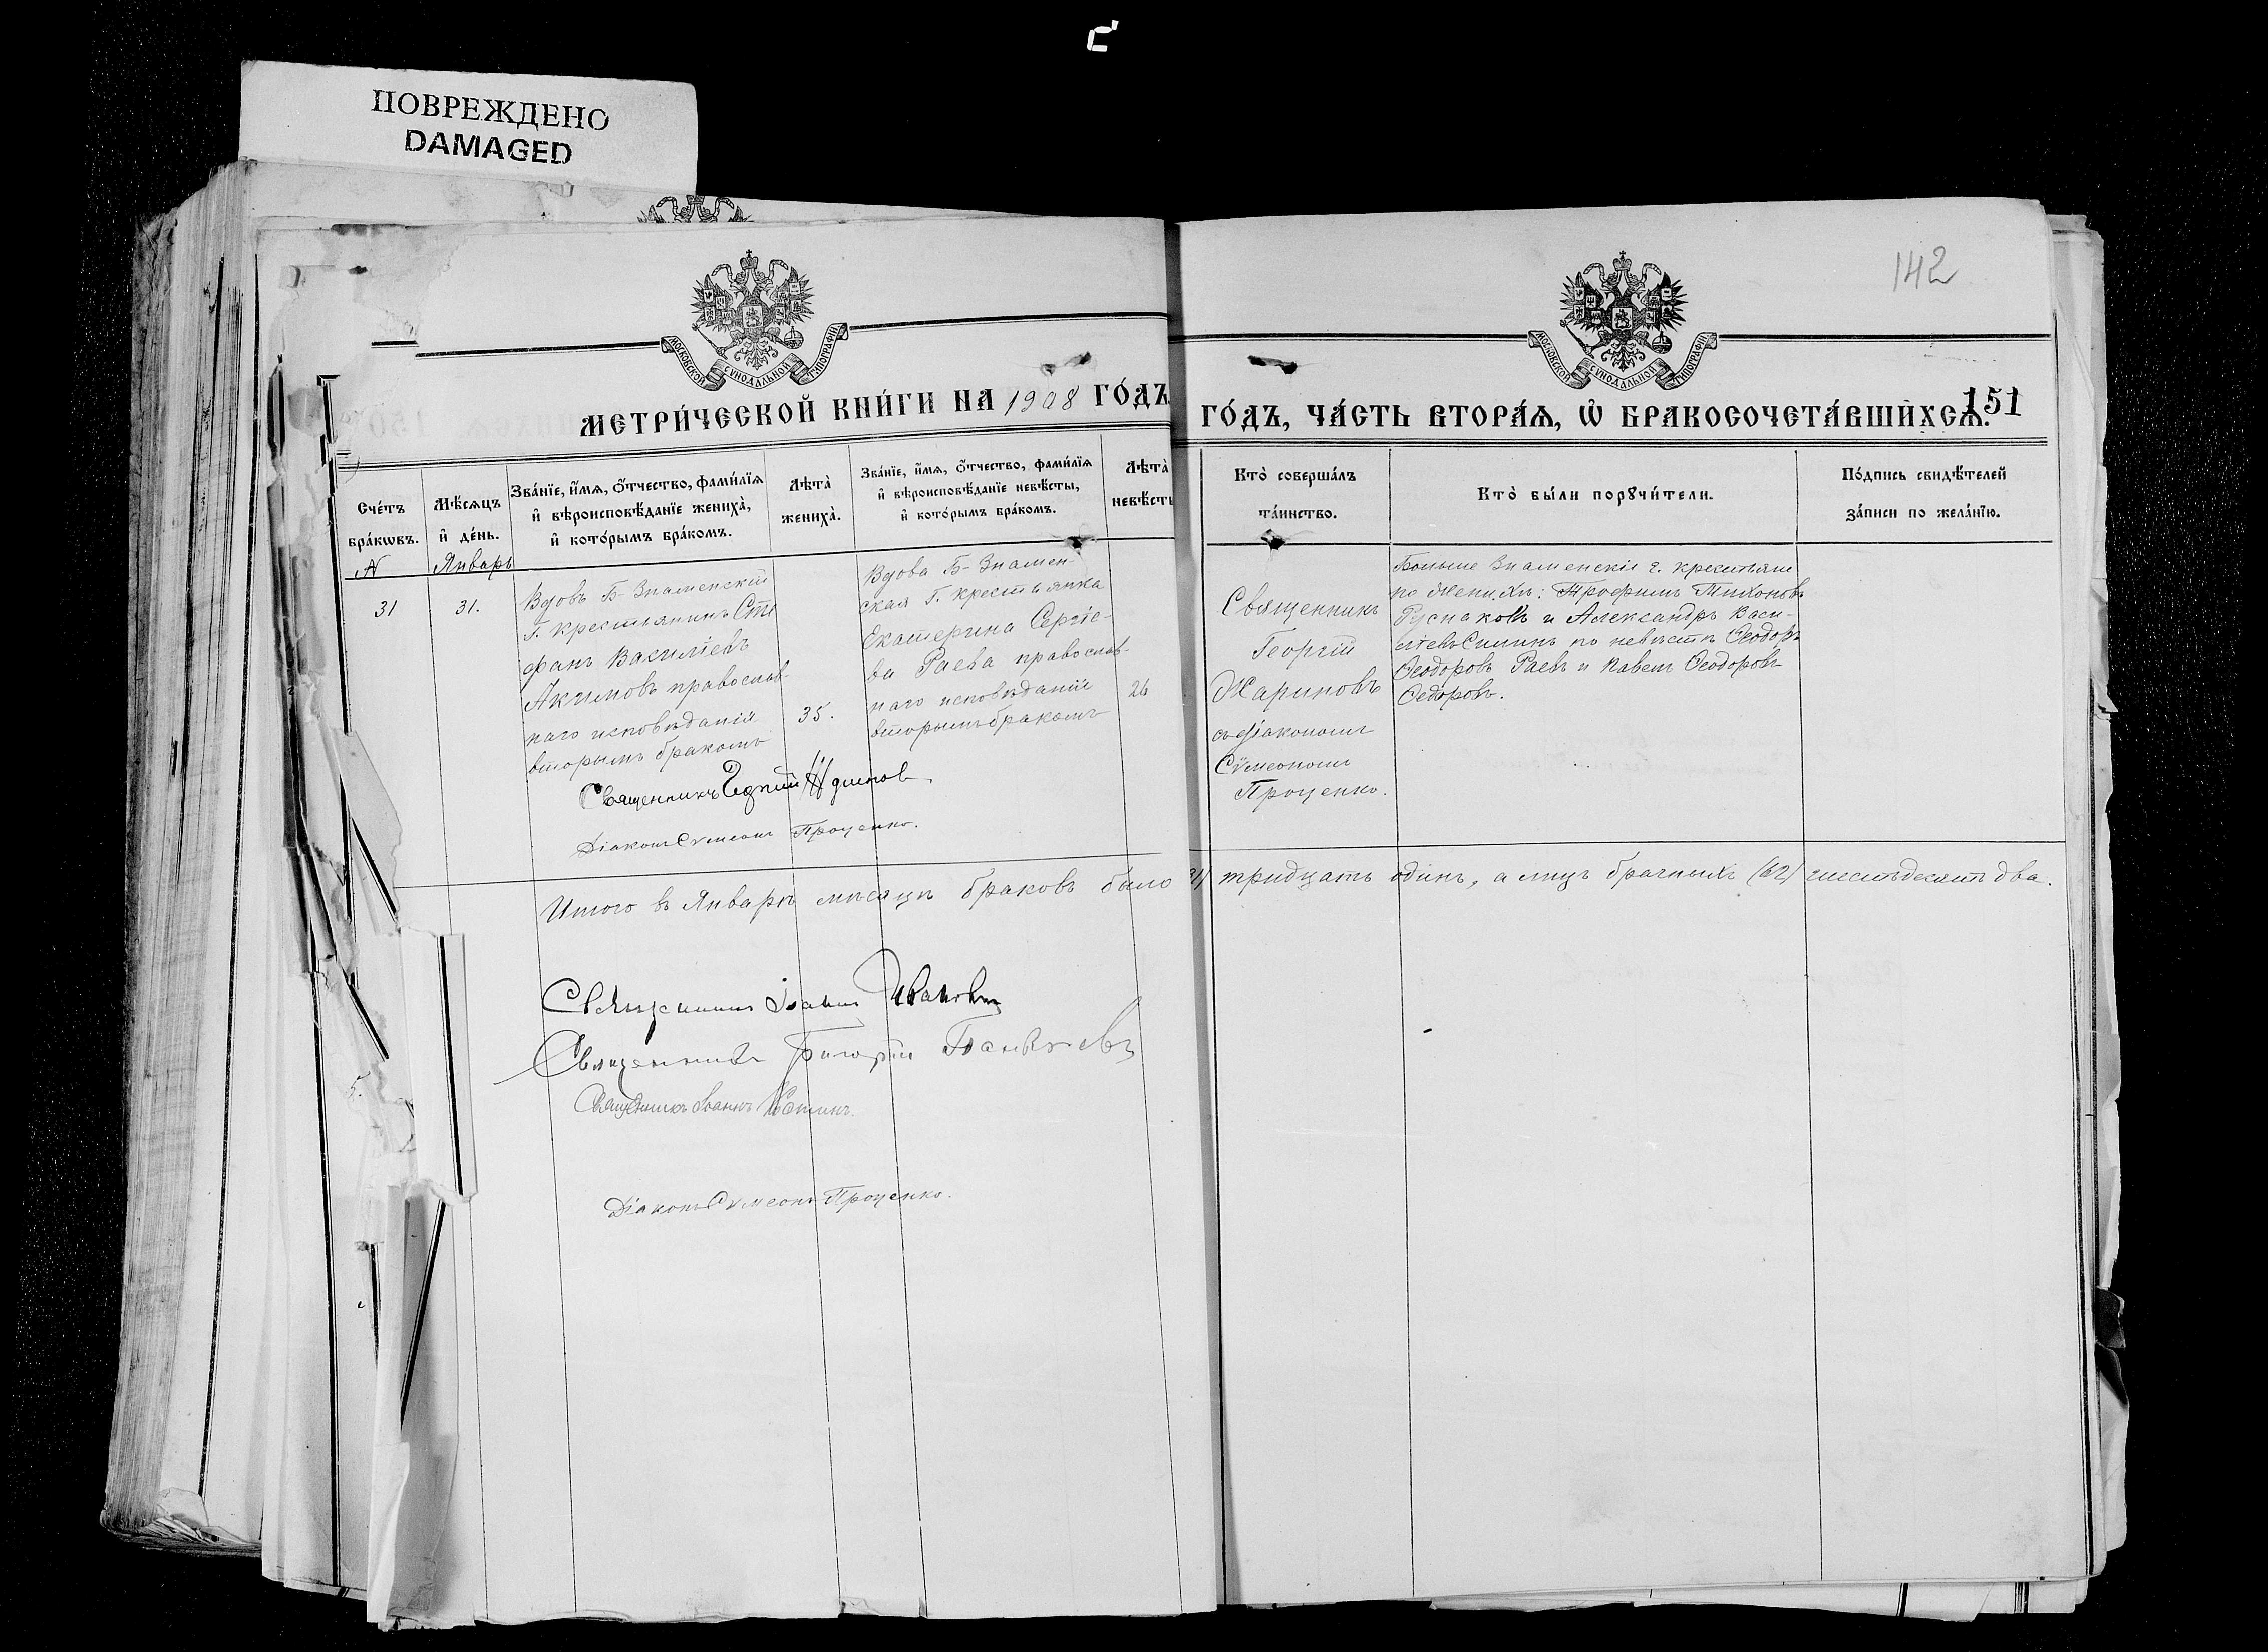 ПОВРЕЖДЕНО
DAMAGED
142
МОСКОВСКОЙ СѴНОДАЛЬНОЙ ТИПОГРАФІИ
МОСКОВСКОЙ СѴНОДАЛЬНОЙ ТИПОГРАФІИ
МЕТРИ́ЧЕСКОЙ КНИ́ГИ НА 1908 ГО́ДЪ
ГО́ДЪ, ЧА́СТЬ ВТОРА́Ѧ, Ѡ҆ БРАКОСОЧЕТА́ВШИХСѦ.
151
Сче́тъ
бра́кѡвъ.
Мѣ́сѧцъ
и҆ де́нь.
Зва́нїе, и҆́мѧ, ѻ҆́тчество, фами́лїѧ
и҆ вѣроисповѣ́данїе жениха̀,
и҆ кото́рымъ бра́комъ.
Лѣта̀
жениха̀.
Зва́нїе, и҆́мѧ, ѻ҆́тчество, фами́лїѧ
и҆ вѣроисповѣ́данїе невѣ́сты,
и҆ кото́рымъ бра́комъ.
Лѣта̀
невѣ́сты
Кто̀ соверша́лъ
та́инство.
Кто̀ бы́ли порꙋчи́тели.
По́дпись свидѣ́телей
за́писи по жела́нїю.
N
Январь
31
31.
Вдовъ Б-Знаменскій
г. крестьянинъ Сте
фанъ Василіевъ
Акимовъ православ-
наго исповѣданія
вторымъ бракомъ
35.
Вдова Б-Знамен-
ская г. крестьянка
Екатерина Сергіе-
ва Раева православ-
наго исповѣданія
вторымъ бракомъ
26
Священникъ
Георгій
Жариновъ
съ діакономъ
Сѵмеономъ
Проценко.
Больше Знаменскіе г. крестьяне
по женихѣ: Трофимъ Тихоновъ
Руснаковъ и Александръ Васи-
ліевъ по невѣстѣ Ѳеодоръ
Ѳеодоровъ Раевъ и Павелъ Ѳеодоровъ
Ѳедоровъ.
Священникъ
Діаконъ Сѵмеонъ Проценко.
Итого въ Январѣ мѣсяцѣ браковъ было 31) тридцать одинъ, а лицъ брачныхъ (62) шестьдесятъ два.
Священникъ Іоаннъ Ивановъ
Священникъ Григорій
Священникъ Іоаннъ
Діаконъ Сѵмеонъ Проценко.